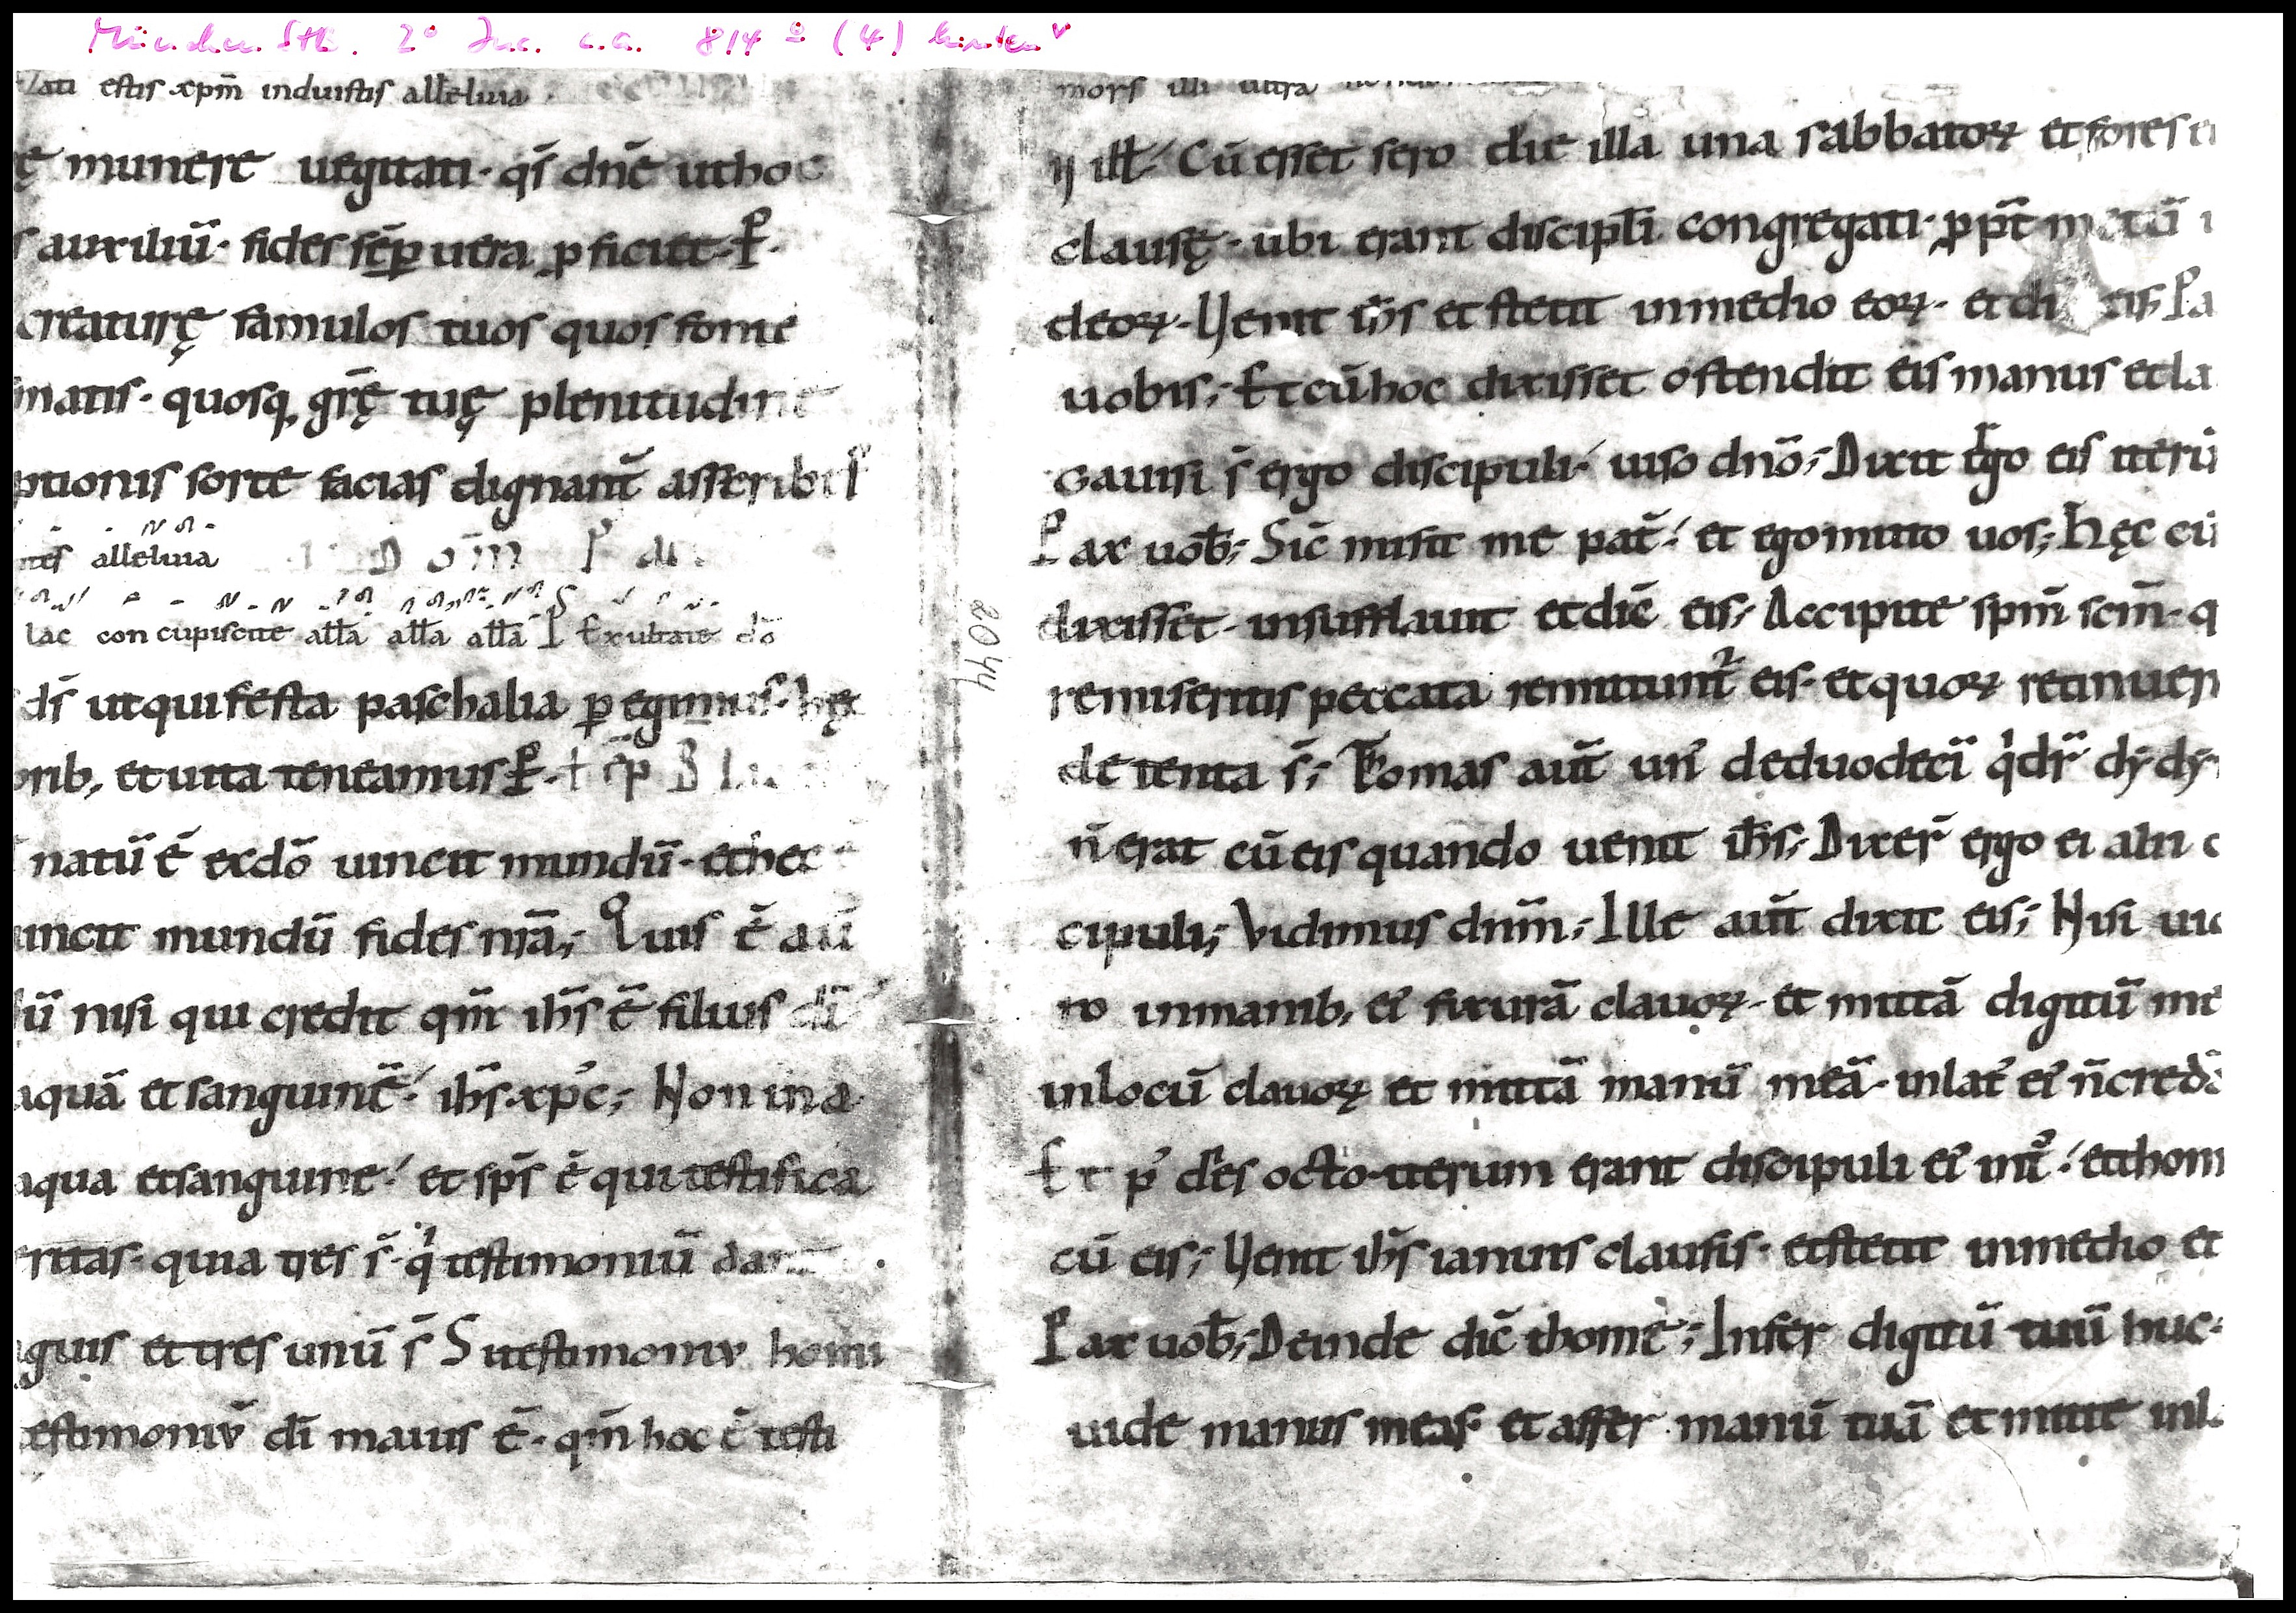 München Stb. 2° Inc. c.a. 814 a (4) hinten v
tati estis xp̄m induistis alleluia
ę munere uegitati · qs̄ dn̄e ut hoc
auxiliū · fides sēp uera ꝓficiet · P̄ ·
creaturę famulos tuos quos fonte
matis · quosq, gr̄ę tuę plenitudine
ptionis sorte facias dignant̄ asscribi P̄
ntes alleluia Dom̄ P di
lac concupiscite all̄a all̄a all̄a P Exultate dō
dī ut qui festa paschalia ꝑegimus · hęc
orib, et uita teneamus P̄ ·
natū ē exdō uincit mundū · et hec
uincit mundū fides nr̄a; Quis ē aū
ū nisi qui credit qm̄ ih̄s ē filius dī
aquā et sanguinē · ih̄s xp̄c; Non in a
aqua et sanguine · et sps̄ ē qui testifica
eritas · quia tres s̄ · qi testimoniū dant
guis et tres unū s̄ Si testimoniv̄ homi
testimoniv̄ dī maius ē · qm̄ hoc ē testi
mors illi ultra
ill̄ Cū esset sero die illa una sabbatoꝝ et fores er
clausę · ubi erant discipl̄i congregati · ꝓpt̄ metū i
deoꝝ · Uenit ih̄s et stetit in medio eoꝝ · et di eis; Pa
uobis; Et cū hoc dixisset ostendit eis manus et la
Gauisi s̄ ergo discipuli uiso dn̄o; Dixit ergo eis iterū
Pax uob̄; Sic̄ misit me pat̄ et ego mitto uos; Hęc cū
dixisset · insufflauit et dic̄ eis; Accipite spm̄ scm̄ · q
remiseritis peccata remittunt̄ eis · et quoꝝ retinuer
detenta s̄; Tomas aut̄ un' de duodecī qi dr̄ dydy
n̄ erat cū eis quando uenit ih̄s; Dixer̄ ergo ei alii
cipuli; Vidimus dnm̄; Ille aut̄ dixit eis; Nisi uid
ro in manib, ei' fixurā clauoꝝ · et mittā digitū me
in locū clauoꝝ et mittā manū meā · in lat' ei' n̄ credā
Et p' dies octo · iterum erant discipuli ei' int' · et thom
cū eis; Uenit ih̄s ianuis clausis · et stetit in medio et
Pax uob̄; Deinde dic̄ thome; Infer digitū tuū huc ·
uide manus meas · et affer manū tuā et mitte in l
2044